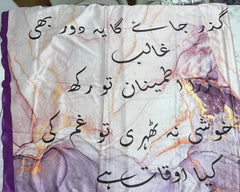 گذر جائے گا یہ دور بھی
غالب
ذرا اطمینان تو رکھ
خوشی نہ ٹھہری تو غم کی
کیا اوقات ہے